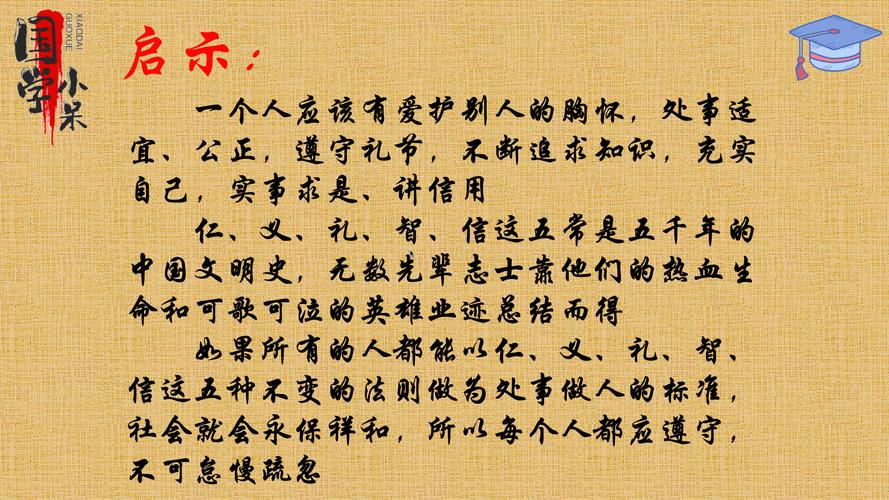 国学小呆
XIAODAI
GUOXUE
启示：
一个人应该有爱护别人的胸怀，处事适
宜、公正，遵守礼节，不断追求知识，充实
自己，实事求是、讲信用
仁、义、礼、智、信这五常是五千年的
中国文明史，无数先辈志士靠他们的热血生
命和可歌可泣的英雄业迹总结而得
如果所有的人都能以仁、义、礼、智、
信这五种不变的法则做为处事做人的标准，
社会就会永保祥和，所以每个人都应遵守，
不可怠慢疏忽